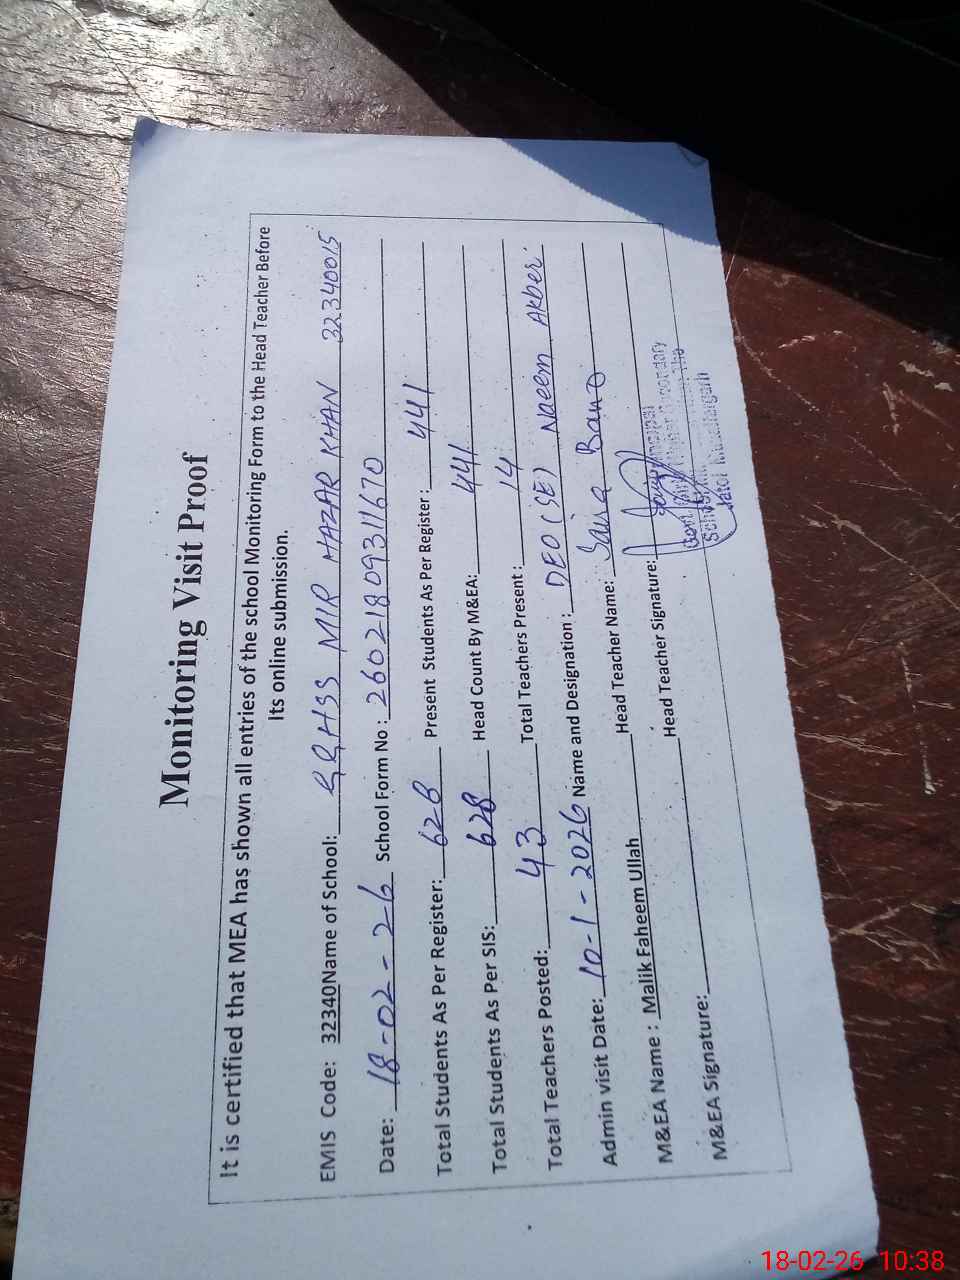 Monitoring Visit Proof
It is certified that MEA has shown all entries of the school Monitoring Form to the Head Teacher Before
Its online submission.
EMIS Code: 32340Name of School: GGHSS MIR HAZAR KHAN 32340015
Date: 18-02-26 School Form No : 260218093111670
Total Students As Per Register: 628 Present Students As Per Register : 441
Total Students As Per SIS: 628 Head Count By M&EA: 441
Total Teachers Posted: 43 Total Teachers Present : 14
Admin visit Date: 10-1-2026 Name and Designation : DEO (SE) Naeem Akber
M&EA Name : Malik Faheem Ullah Head Teacher Name: Saira Bano
M&EA Signature: Head Teacher Signature:
Principal
Govt. Girls Higher Secondary
Jatoi Muzaffargarh
18-02-26 10:38